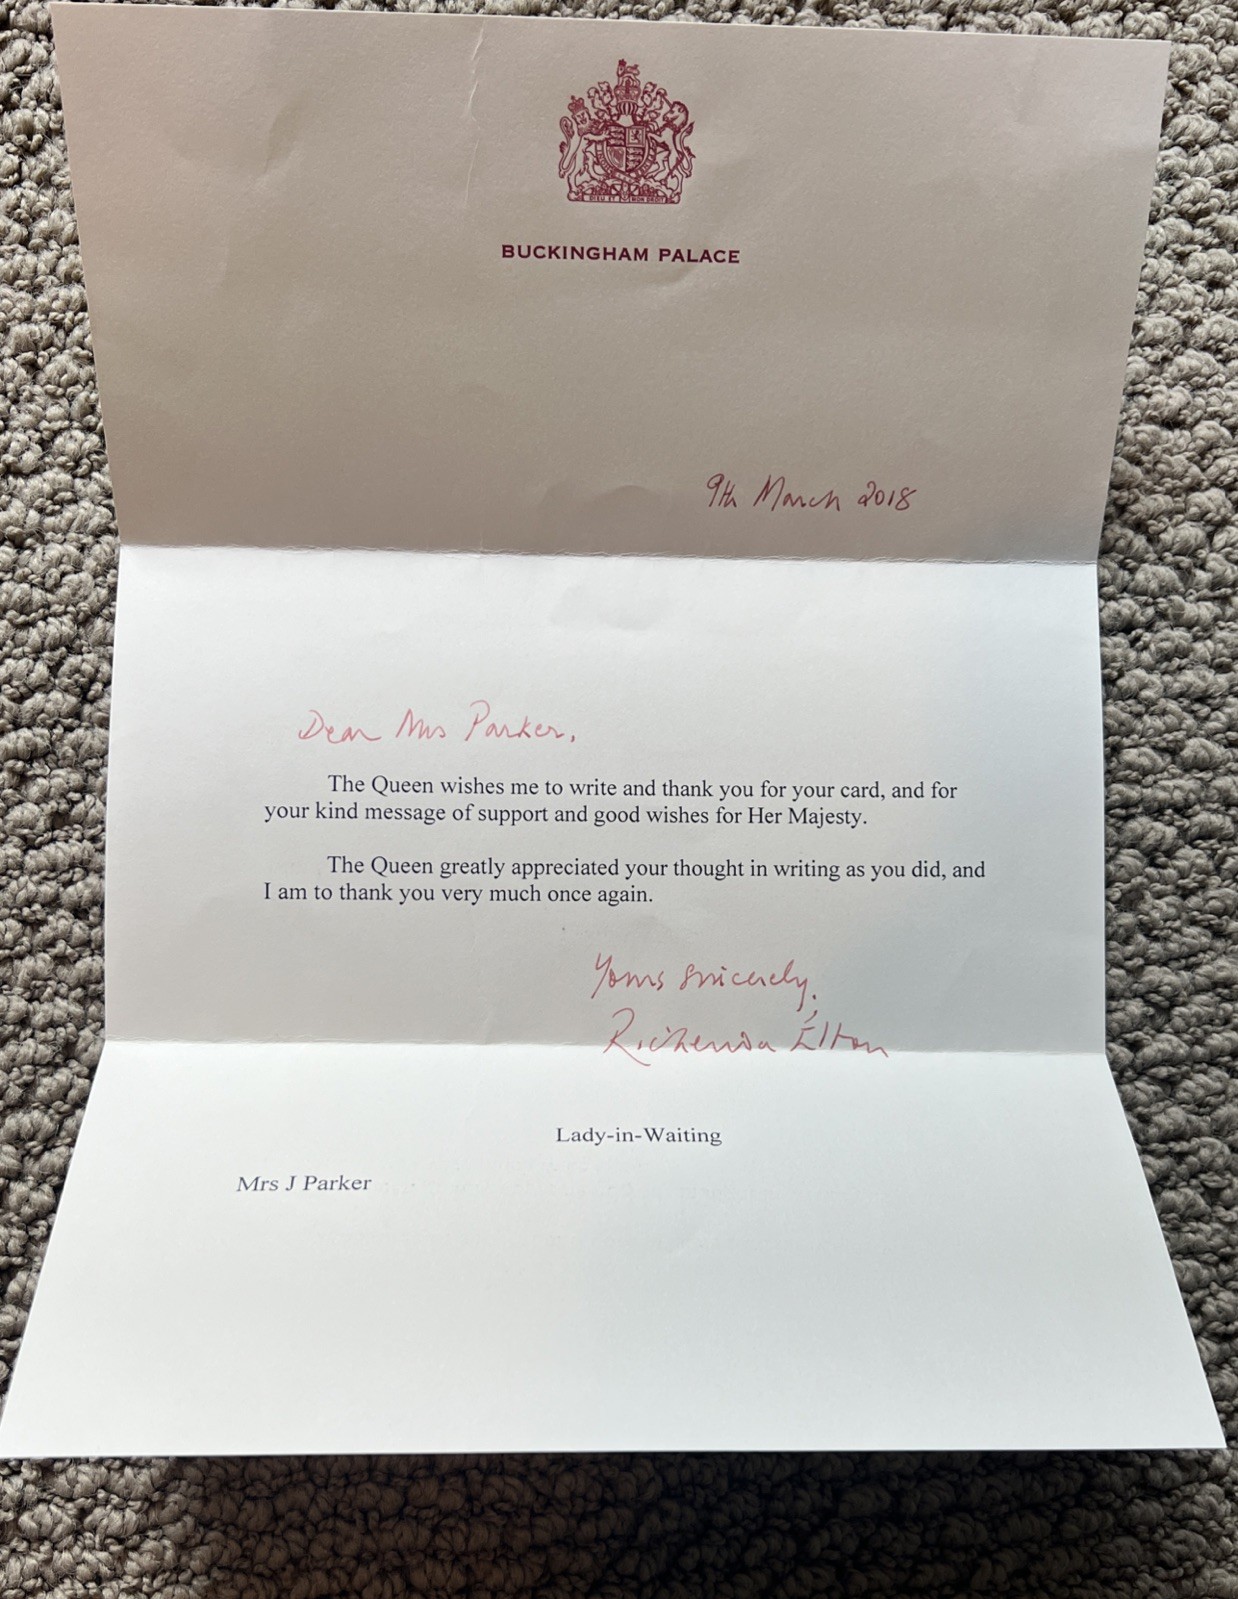 DIEU ET MON DROIT
BUCKINGHAM PALACE
9th March 2018
Dear Mrs Parker,
The Queen wishes me to write and thank you for your card, and for
your kind message of support and good wishes for Her Majesty.
The Queen greatly appreciated your thought in writing as you did, and
I am to thank you very much once again.
Yours sincerely,
Richenda Elton
Lady-in-Waiting
Mrs J Parker